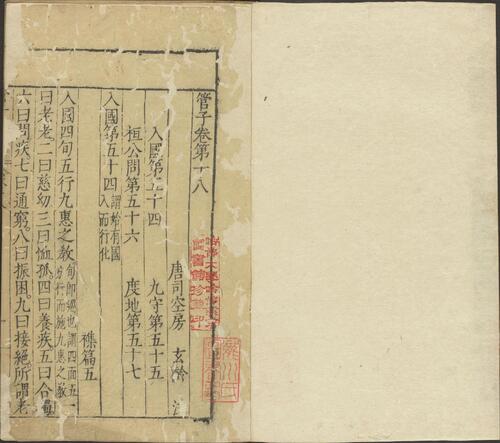 管子卷第十八
唐司空房 玄齡 注
入國第五十四 九守第五十五
桓公問第五十六 度地第五十七
入國第五十四 謂始有國入而行化 襍篇五
入國四旬五行九惠之教 旬即巡也謂四面五方行而施九惠之教 一
曰老老二曰慈幼三曰恤孤四曰養疾五曰合獨
六曰問疾七曰通窮八曰振困九曰接絕所謂老